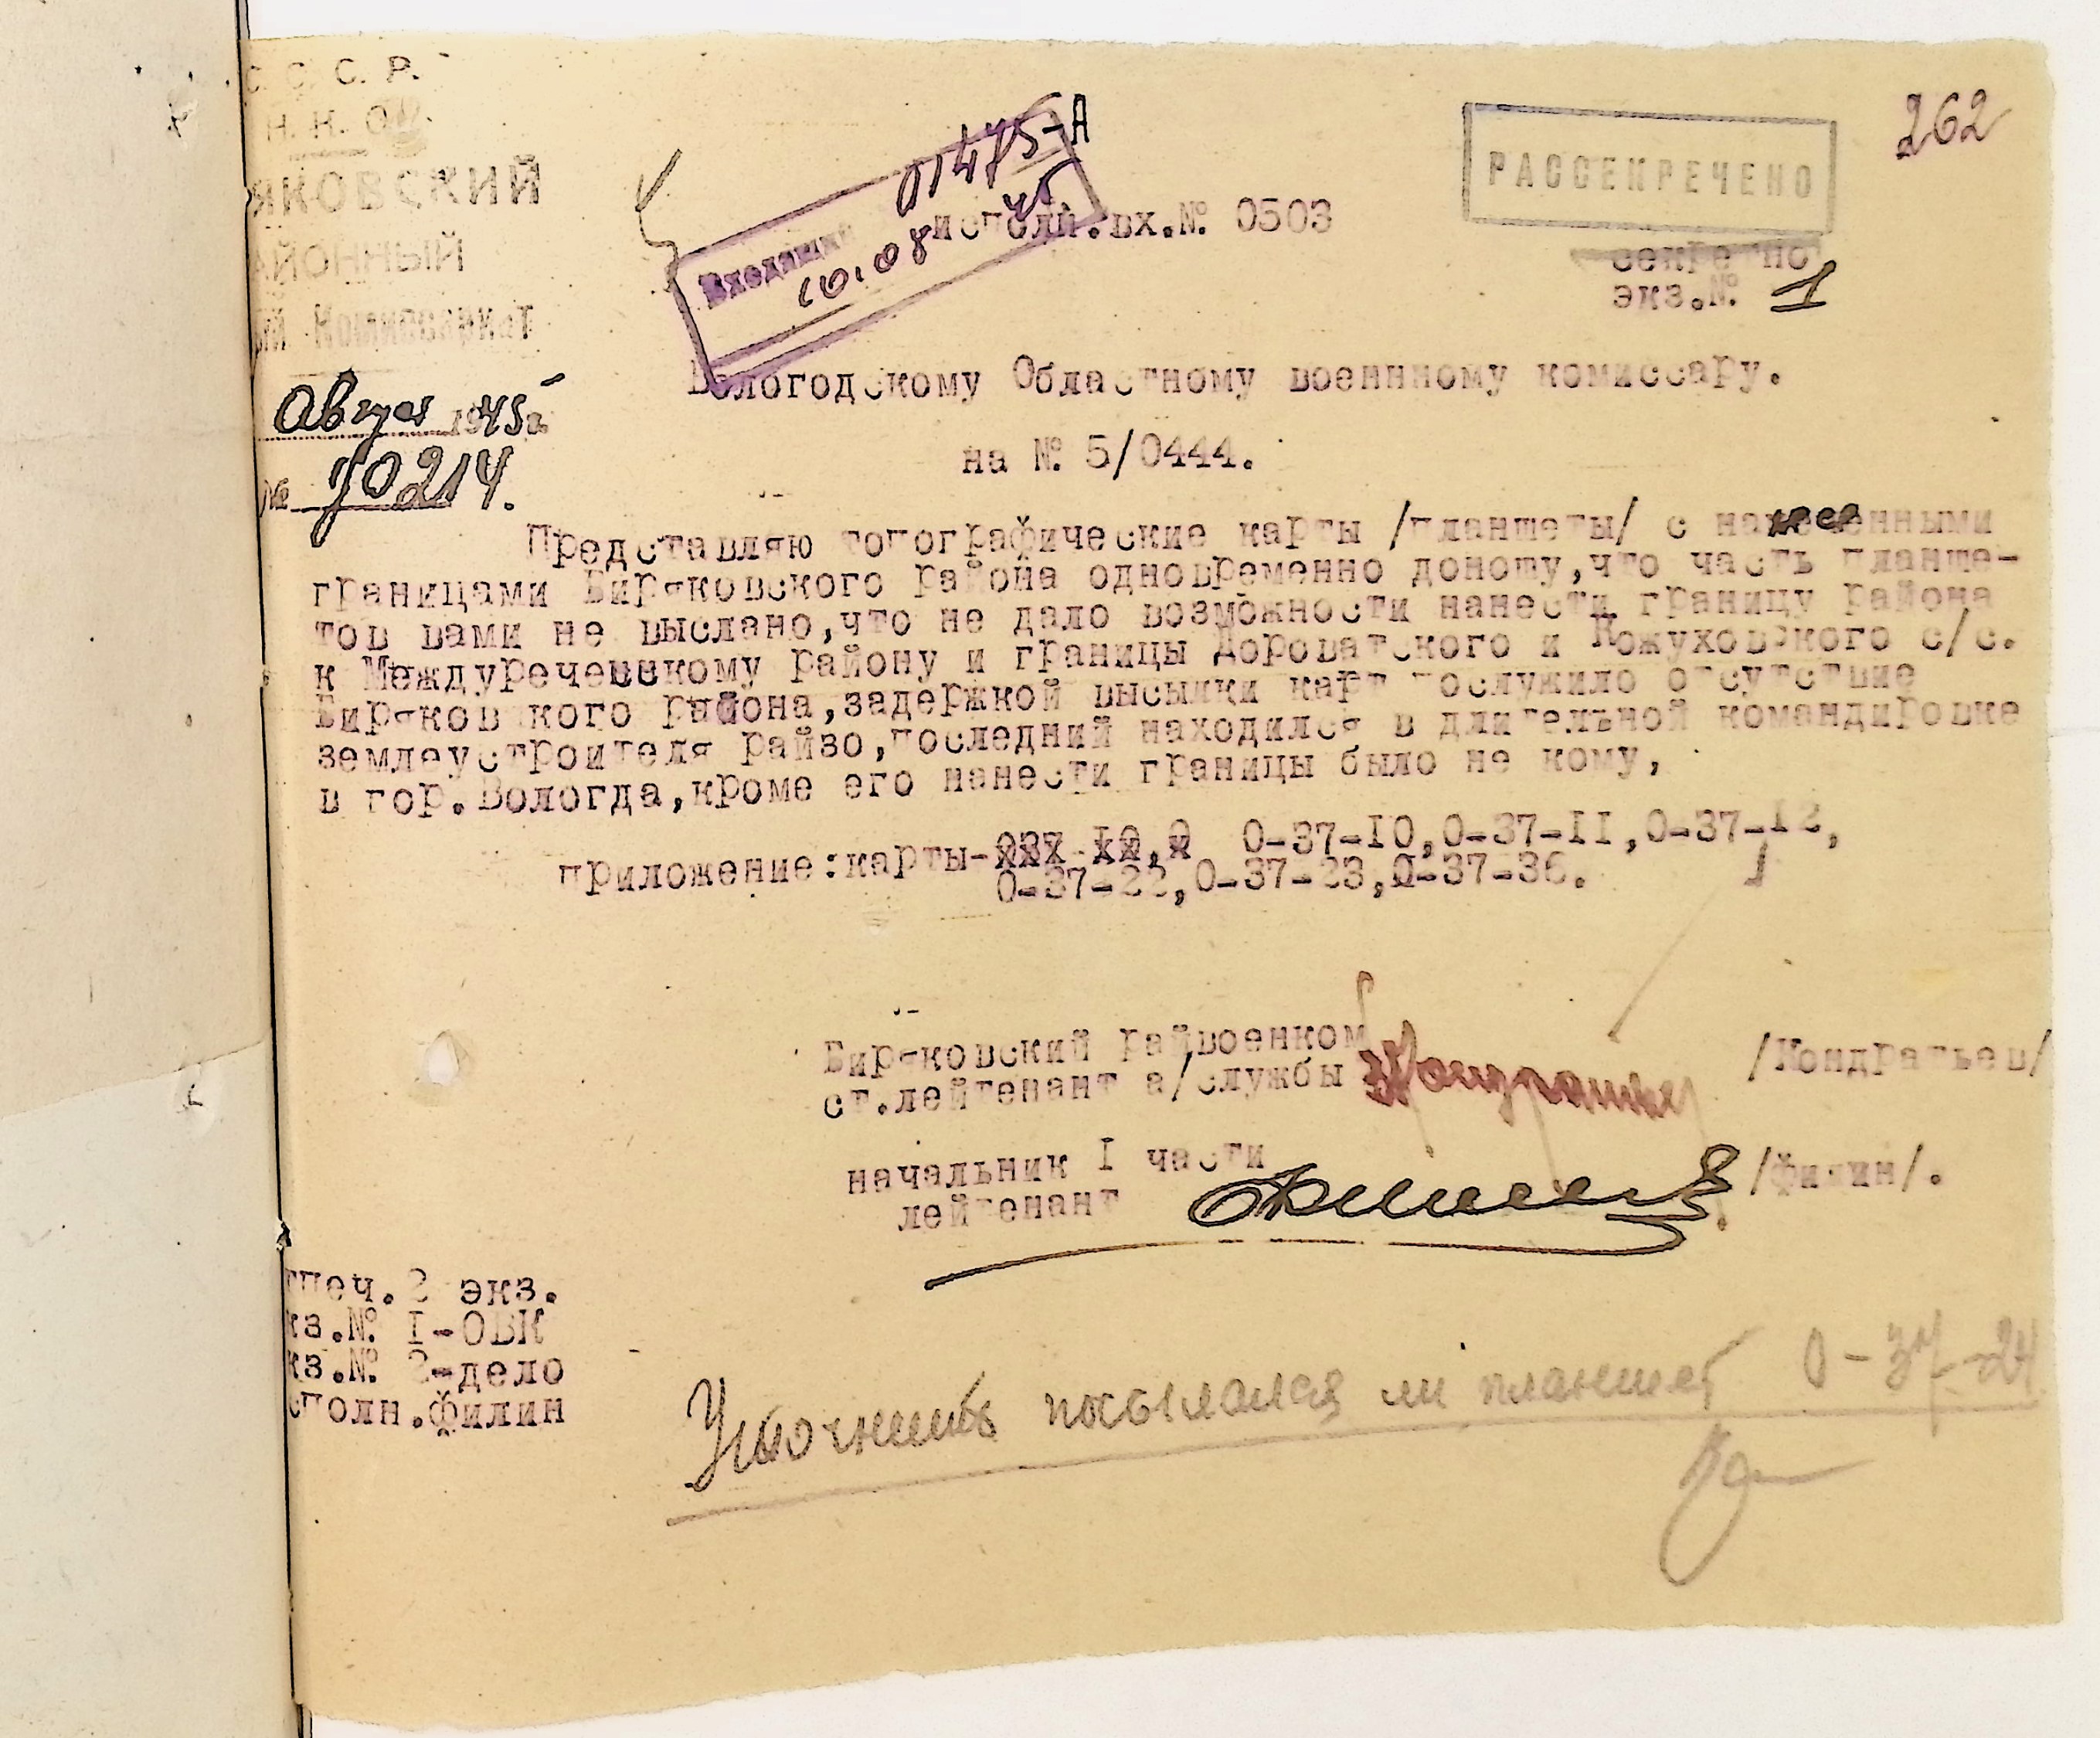 С. С. С. Р.
Н. К. О.
ЯКОВСКИЙ
АЙОННЫЙ
ЫЙ Комиссариат
Август 1945г.
№ 10214.
Входящий 01475-А
10.08 45
исполн.вх.№ 0503
РАССЕКРЕЧЕНО
262
секретно
экз.№ 1
Вологодскому Областному военнному комиссару.
на № 5/0444.
Представляю топографические карты /планшеты/ с нанесенными
границами Биряковского района одновременно доношу,что часть планше-
тов вами не выслано,что не дало возможности нанести границу района
к Междуреченскому району и границы Дороватского и Кожуховского с/с.
Биряковского района,задержкой высылки карт послужило отсутствие
землеустроителя райзо,последний находился в длительной командировке
в гор.Вологда,кроме его нанести границы было не кому,
приложение:карты- 0-37-10,0-37-11,0-37-12,
0-37-22,0-37-23,0-37-36.
Биряковский райвоенком
ст.лейтенант а/службы Кондратьев /Кондратьев/
начальник I части
лейтенант /филин/.
тпеч.2 экз.
кз.№ I-ОВК
кз.№ 2-дело
сполн.филин
Уточнить посылался ли планшет 0-37-24